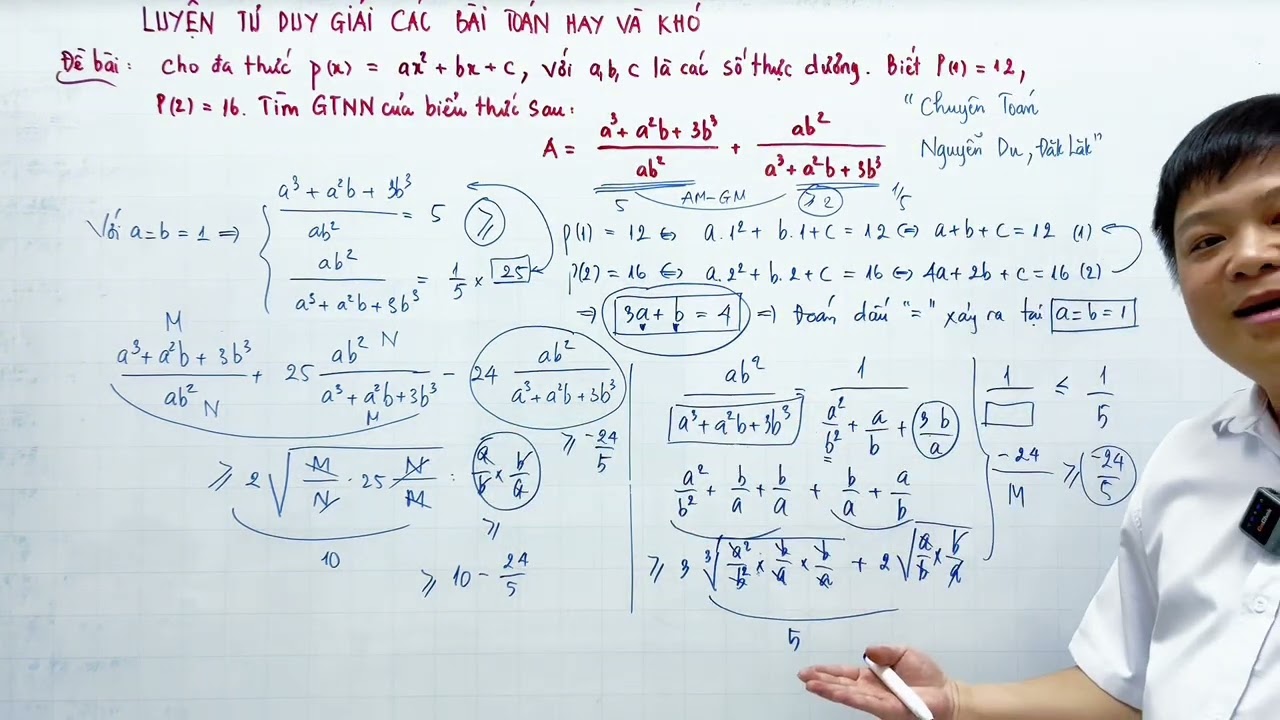 LUYỆN TƯ DUY GIẢI CÁC BÀI TOÁN HAY VÀ KHÓ
Đề bài: Cho đa thức p(x) = ax² + bx + c, với a, b, c là các số thực dương. Biết P(1) = 12,
P(2) = 16. Tìm GTNN của biểu thức sau:
"Chuyên Toán
Nguyễn Du, Đăk Lăk"
A = (a³ + a²b + 3b³)/(ab²) + (ab²)/(a³ + a²b + 3b³)
5 AM-GM 1/5
Với a = b = 1 ⇒ { (a³ + a²b + 3b³)/(ab²) = 5 ≥
(ab²)/(a³ + a²b + 3b³) = 1/5 × 25
p(1) = 12 ⇔ a.1² + b.1 + c = 12 ⇔ a + b + c = 12 (1)
p(2) = 16 ⇔ a.2² + b.2 + c = 16 ⇔ 4a + 2b + c = 16 (2)
⇒ 3a + b = 4 ⇒ Đoán dấu "=" xảy ra tại a = b = 1
M N
(a³ + a²b + 3b³)/(ab²) + 25 (ab²)/(a³ + a²b + 3b³) - 24 (ab²)/(a³ + a²b + 3b³)
N M
≥ -24/5
≥ 2√(M/N . 25 N/M) : a/b × b/a
10 ≥
≥ 10 - 24/5
(ab²)/(a³ + a²b + 3b³) = 1/(a²/b² + a/b + 3b/a)
a²/b² + b/a + b/a + b/a + a/b
≥ 3 ³√(a²/b² × b/a × b/a) + 2√(a/b × b/a)
5
1/□ ≤ 1/5
-24/M ≥ -24/5